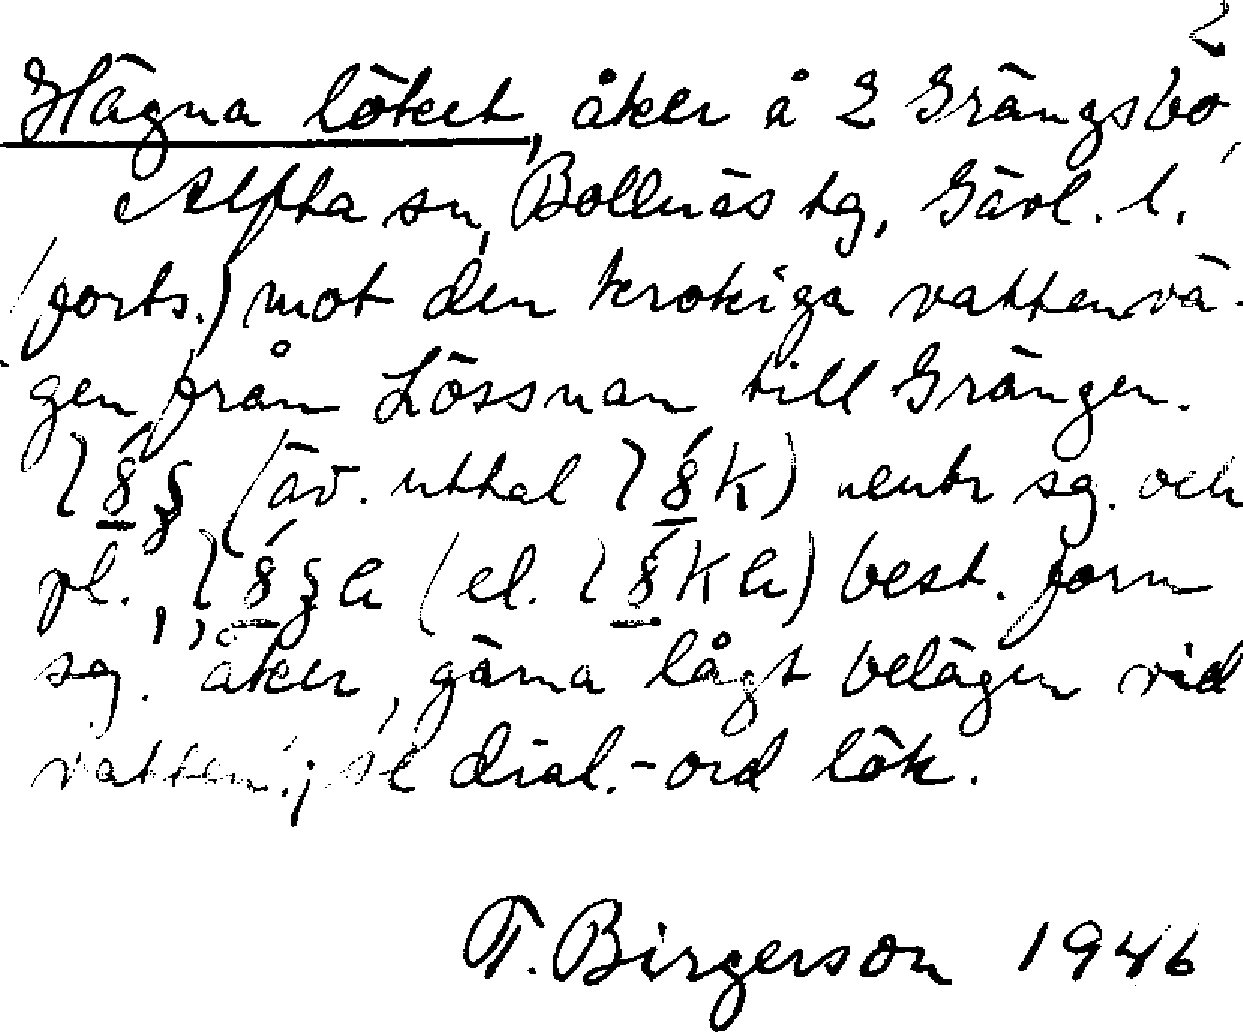 2
Hägna löket, åker å 2 Grängsbo,
Alfta sn, Bollnäs tg, Gävl. l.
(forts.) mot den krokiga vattenvä-
gen från Lössnan till Grängen.
(äv. uttal neutr sg. och
pl., (el. best. form
sg. 'åker, gärna lågt belägen vid
vatten'; se dial.-ord lök.
T. Birgerson 1946